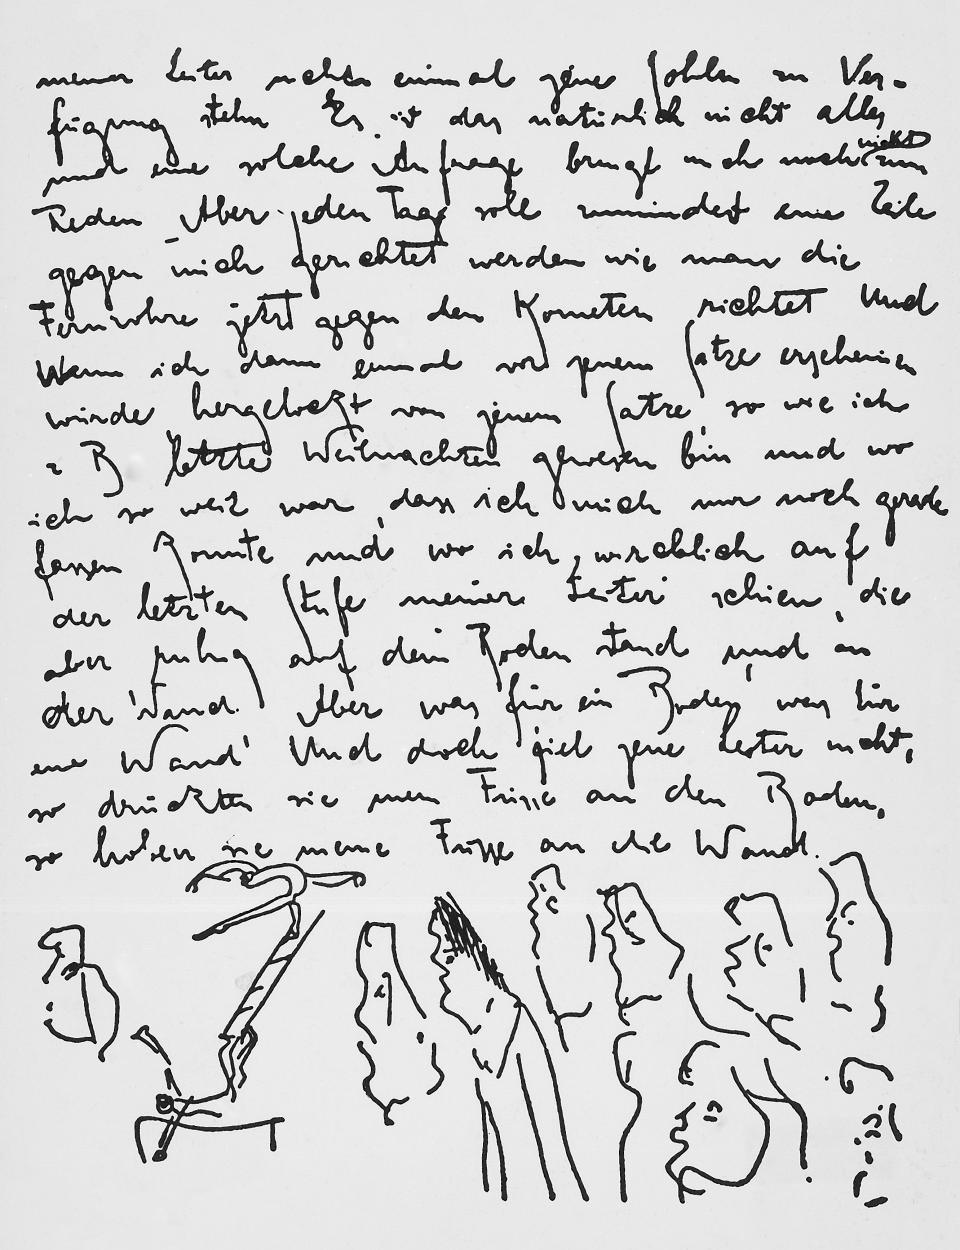 meiner Leiter nicht einmal jene Sohlen zur Ver-
fügung stehn. Es ist das natürlich nicht alles
und eine solche Anfrage bringt mich noch nicht zum
Reden. Aber jeden Tag soll zumindest eine Zeile
gegen mich gerichtet werden wie man die
Fernrohre jetzt gegen den Kometen richtet. Und
Wenn ich dann einmal vor jenem Satze erscheinen
würde, hergelockt von jenem Satze, so wie ich
z B letzte Weihnachten gewesen bin und wo
ich so weit war, dass ich mich nur noch gerade
fassen konnte und wo ich wirklich auf
der letzten Stufe meiner Leiter schien, die
aber ruhig auf dem Boden stand und an
der Wand. Aber was für ein Boden, was für
eine Wand! Und doch fiel jene Leiter nicht,
so drückten sie meine Füsse an den Boden,
so hoben sie meine Füsse an die Wand.